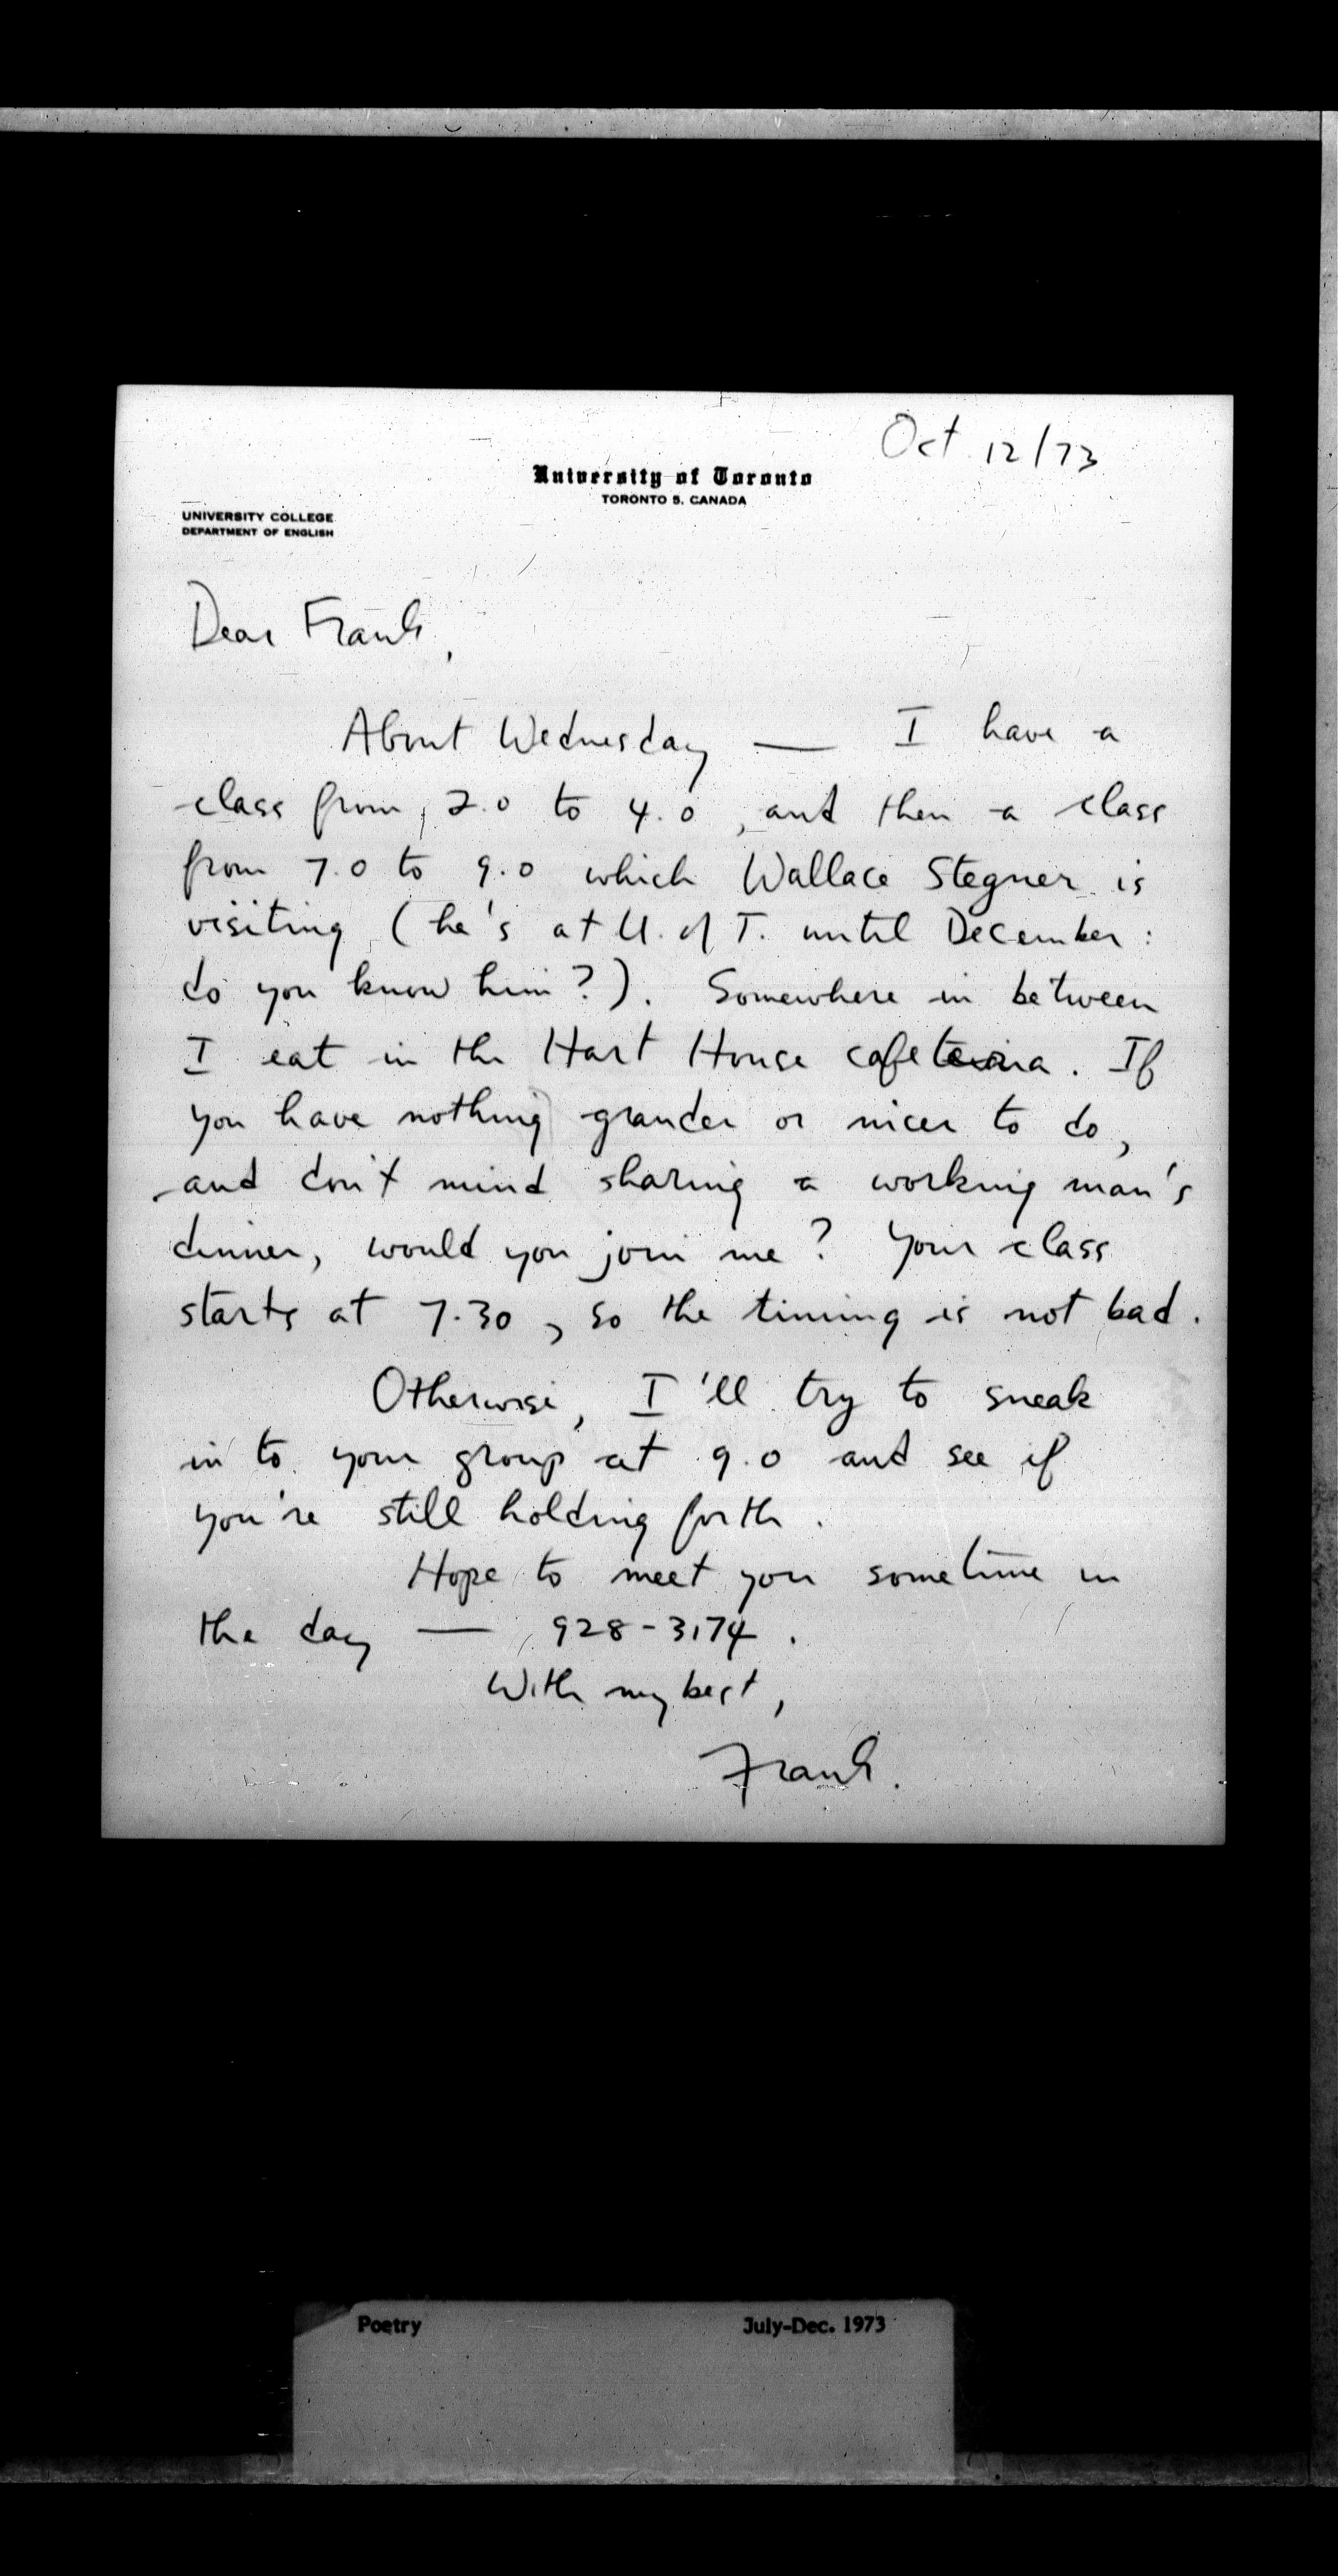 Oct. 12/73
University of Toronto
TORONTO 5, CANADA
UNIVERSITY COLLEGE
DEPARTMENT OF ENGLISH
Dear Frank,
About Wednesday — I have a
class from 2.0 to 4.0, and then a class
from 7.0 to 9.0 which Wallace Stegner is
visiting (he's at U. of T. until December:
do you know him?). Somewhere in between
I eat in the Hart House cafeteria. If
you have nothing grander or nicer to do,
and don't mind sharing a working man's
dinner, would you join me? Your class
starts at 7.30, so the timing is not bad.
Otherwise, I'll try to sneak
in to your group at 9.0 and see if
you're still holding forth.
Hope to meet you sometime in
the day — 928-3174.
With my best,
Frank.
Poetry July-Dec. 1973